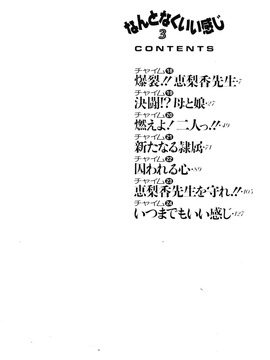 なんとなくいい感じ
3
CONTENTS
チャイム⑱
爆裂!! 恵梨香先生・7
チャイム⑲
決闘!? 母と娘・27
チャイム⑳
燃えよ! 二人っ!!・49
チャイム㉑
新たなる隷属・71
チャイム㉒
囚われる心・89
チャイム㉓
恵梨香先生を守れ!!・105
チャイム㉔
いつまでもいい感じ・127